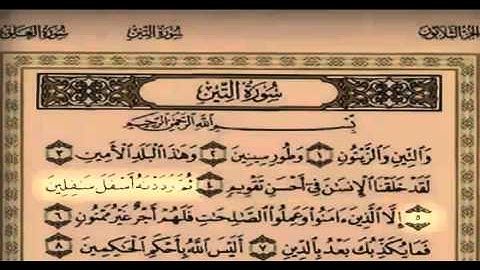 الجزء الثلاثون سورة التين سورة العلق
سورة التين
بسم الله الرحمن الرحيم
والتين والزيتون ١ وطور سينين ٢ وهذا البلد الأمين ٣
لقد خلقنا الإنسن في أحسن تقويم ٤ ثم رددنه أسفل سفلين
٥ إلا الذين ءامنوا وعملوا الصلحت فلهم أجر غير ممنون ٦
فما يكذبك بعد بالدين ٧ أليس الله بأحكم الحكمين ٨